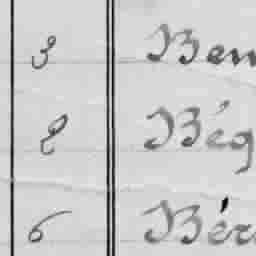 3 Ben
8 Bég
6 Bér